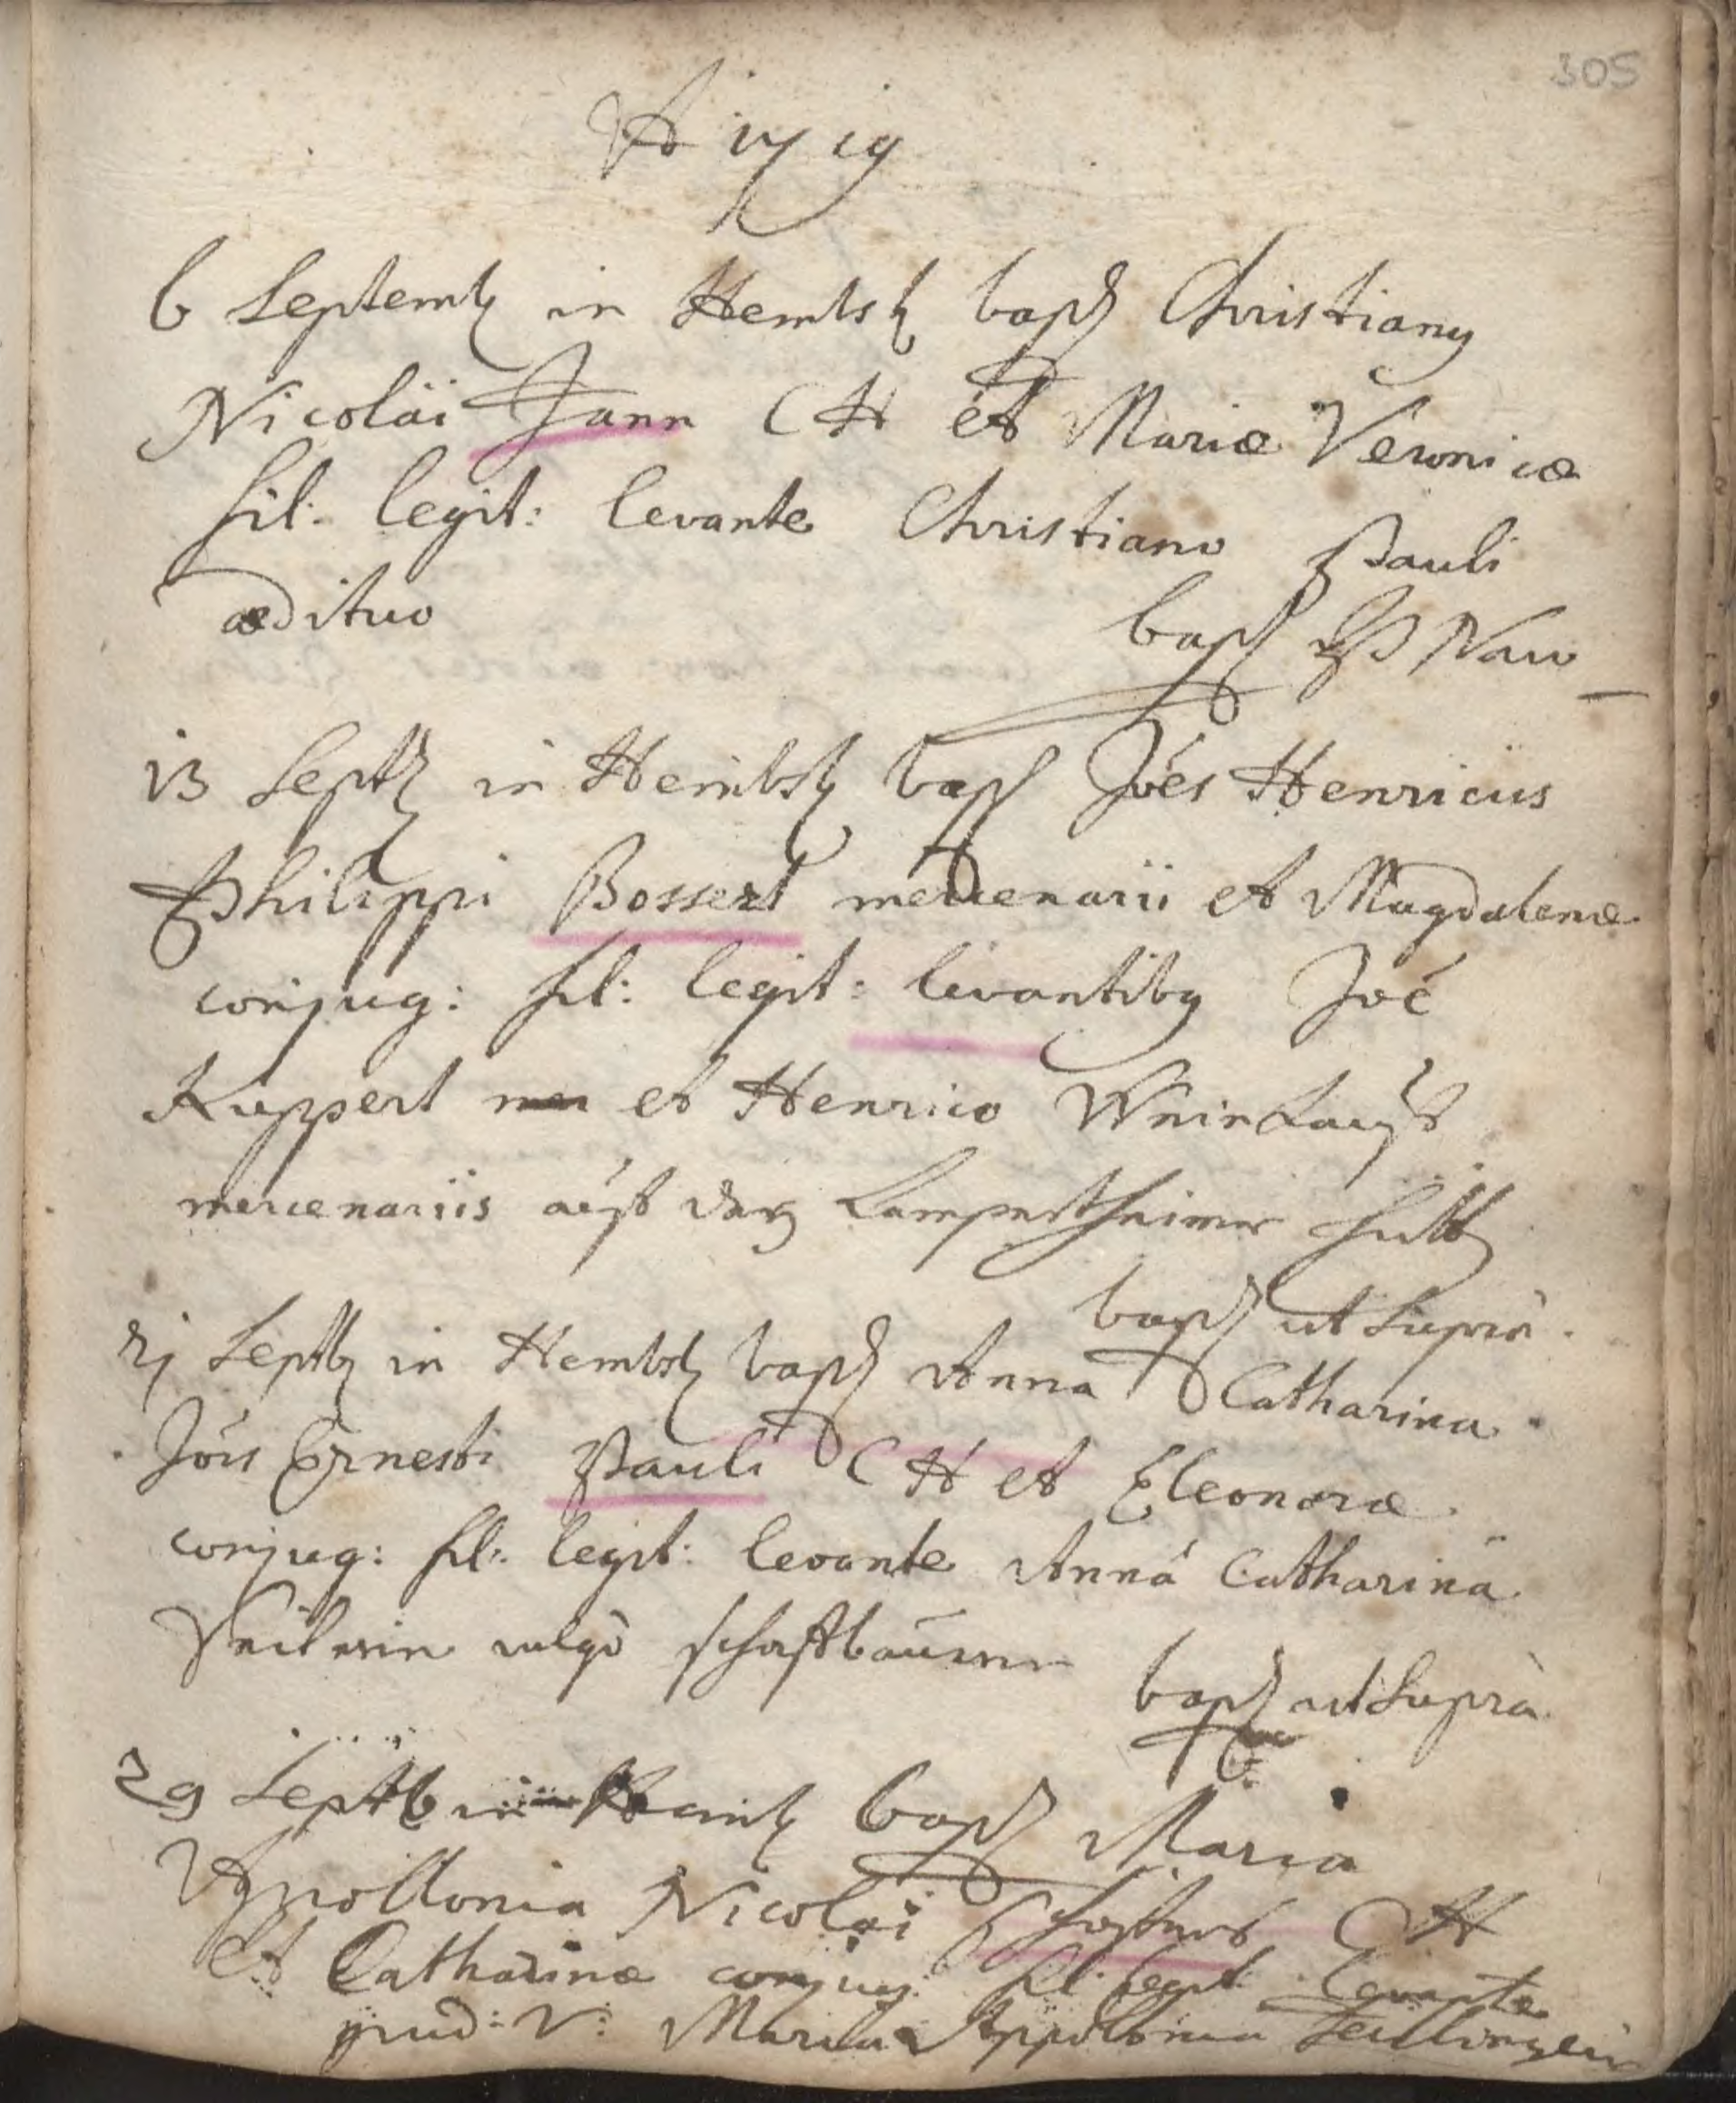 305
A 1719
6 Septemb in Hembsb bapt Christianus
Nicolai Jann CH et Mariæ Veronicæ
fil: legit: levante Christiano Pauli
ædituo
bapt P Naw
13 Septb in Hembsb bapt Joes Henricus
Philippi Bossert mercenarii et Magdalenæ
conjug: fil: legit: levantibus Joe
Ruppert et Henrico
mercenariis auß der Lampertheimer Hütt
bapt ut supra.
21 Septb in Hembsb bapt Anna Catharina
Jois Ernesti Pauli CH et Eleonoræ
conjug: fil: legit: levante Anna Catharina
vulgo
bapt ut supra
29 Septb in bapt Maria
Apollonia Nicolai CH
et Catharinæ conjug: fil: legit: levante
pud: V: Maria Appolonia